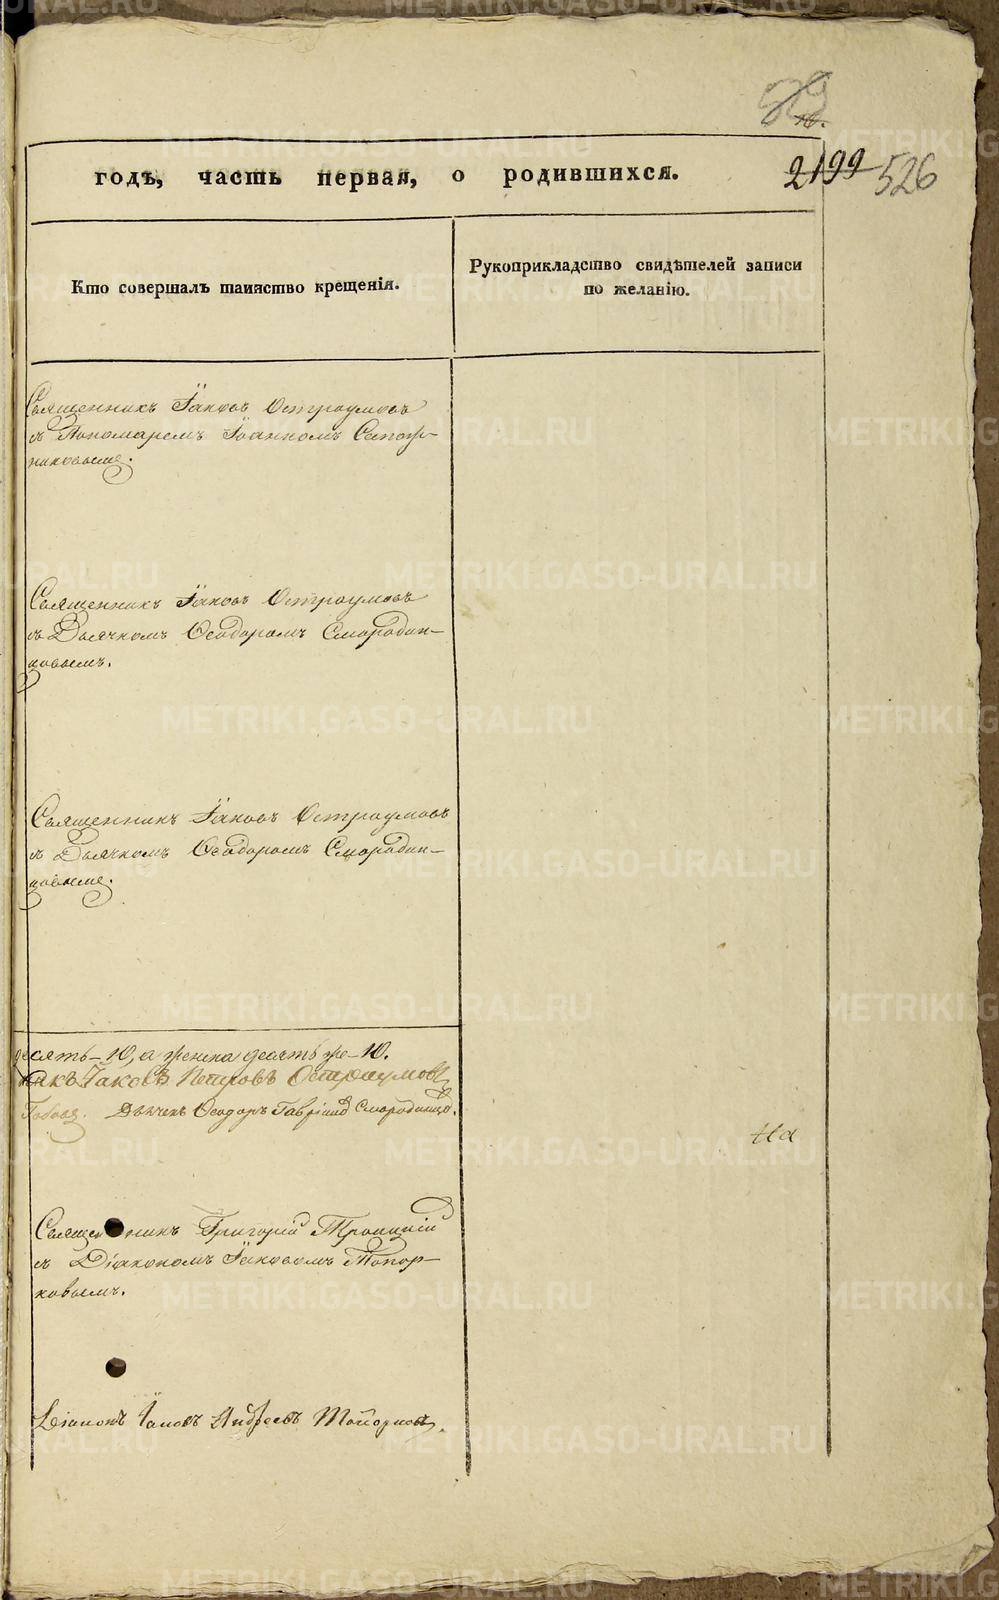 годъ, часть первая, о родившихся.
2199 526
Кто совершалъ таинство крещенія.
Рукоприкладство свидѣтелей записи
по желанію.
Священникъ Іаковъ Остроумовъ
съ Пономаремъ Іоанномъ Сапож-
никовымъ.
Священникъ Іаковъ Остроумовъ
съ Дьячкомъ Ѳеодоромъ Смородин-
цовымъ.
Священникъ Іаковъ Остроумовъ
съ Дьячкомъ Ѳеодоромъ Смородин-
цовымъ.
десять-10, а женска десять же-10.
Іаковъ Петровъ Остроумовъ
Дьячекъ Ѳеодоръ Смородинцо.
Священникъ Григорій Троицкій
съ Діакономъ Іаковомъ Топор-
ковымъ.
Діаконъ Іаковъ Андреевъ Топорковъ.
METRIKI.GASO-URAL.RU